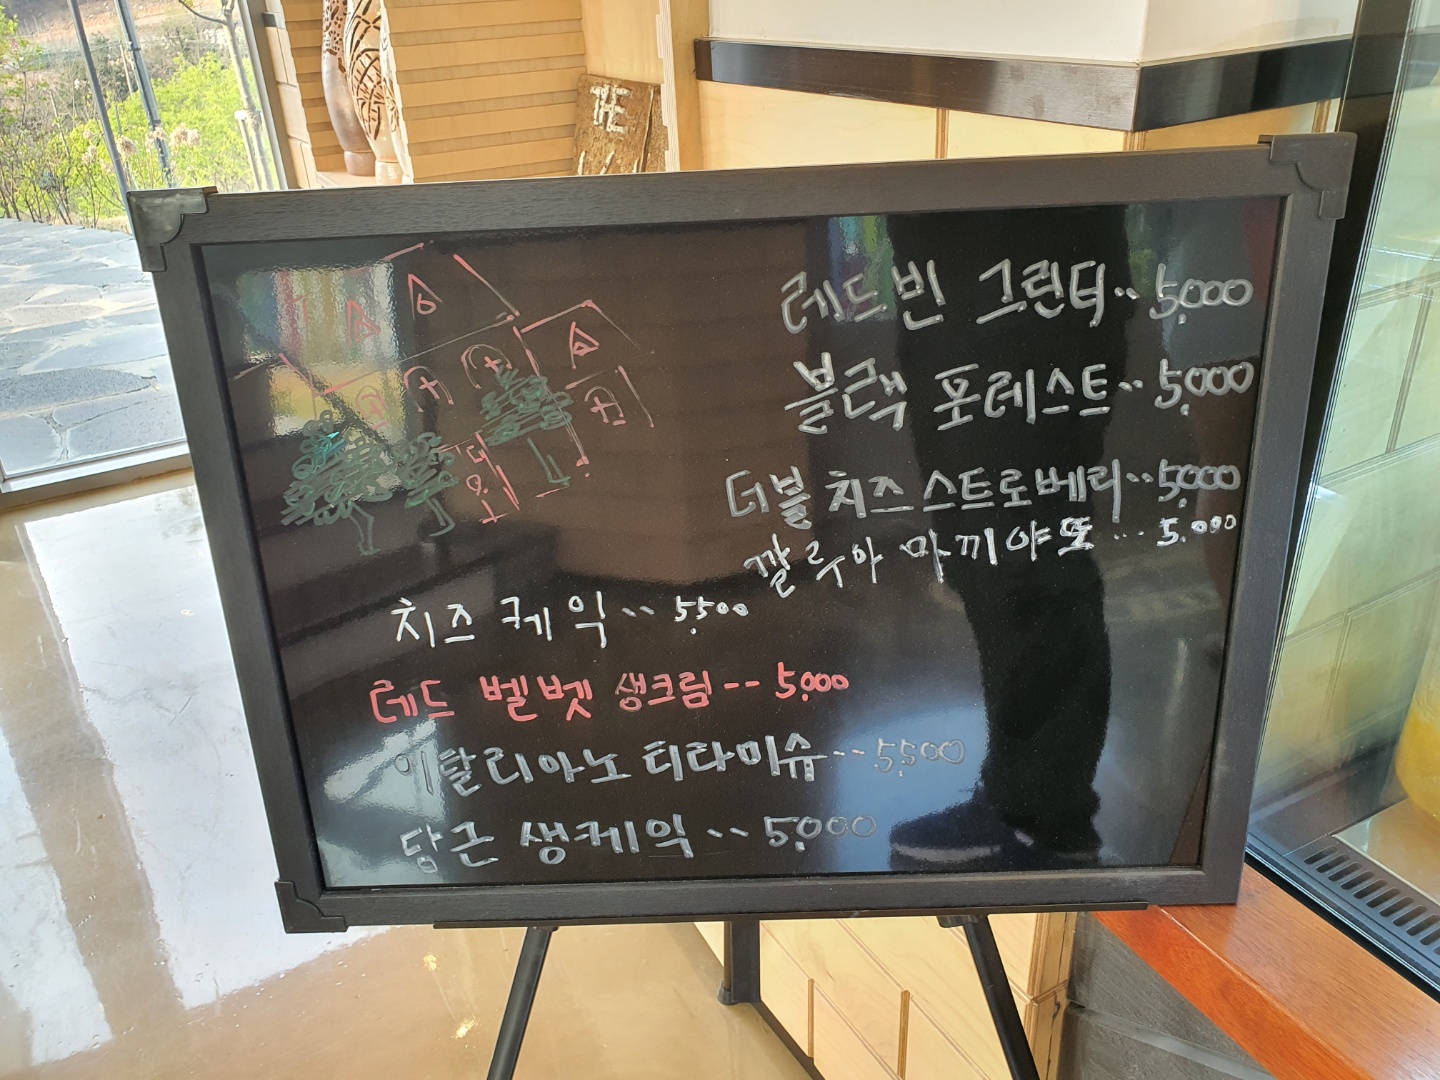 THE
레드빈 그린티.. 5,000
블랙 포레스트.. 5,000
더블 치즈 스트로베리.. 5,000
깔루아 마끼아또... 5.000
치즈 케익.. 5,500
레드 벨벳 생크림-- 5,000
이탈리아노 티라미슈-- 5,500
당근 생케익.. 5,000